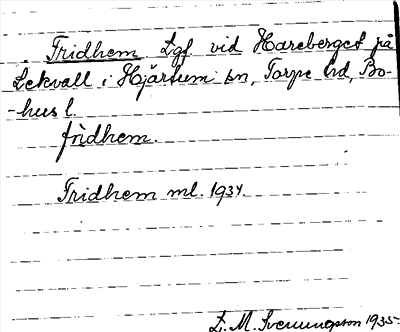 Fridhem Lgf vid Hareberget på
Lekvall i Hjärtum sn, Torpe hd, Bo-
-hus l.
frìdhem.
Fridhem ml. 1934.
L. M. Svenungsson 1935.